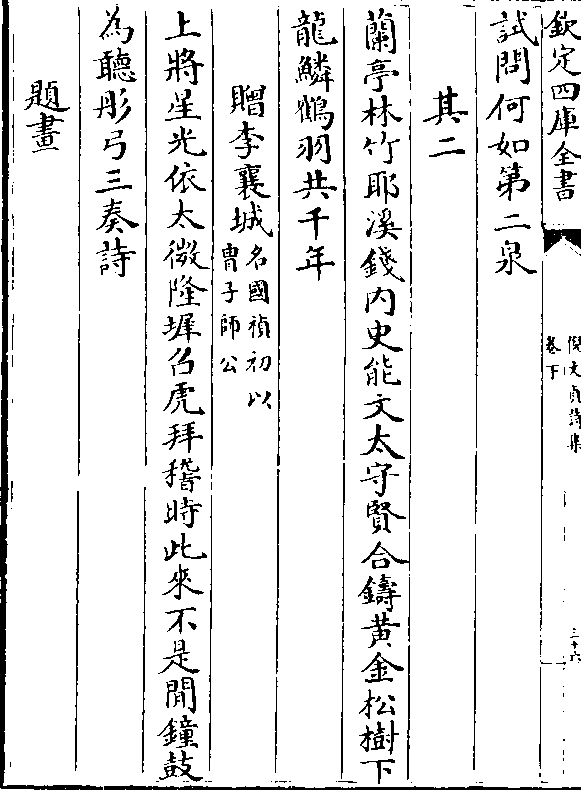 欽定四庫全書
倪文貞詩集
卷下
三十六
試問何如第二泉
其二
蘭亭林竹耶溪錢内史能文太守賢合鑄黄金松樹下
龍鱗鶴羽共千年
贈李襄城名國禎初以
胄子師公
上將星光依太微隆墀召虎拜稽時此來不是聞鐘鼓
為聽彤弓三奏詩
題畫